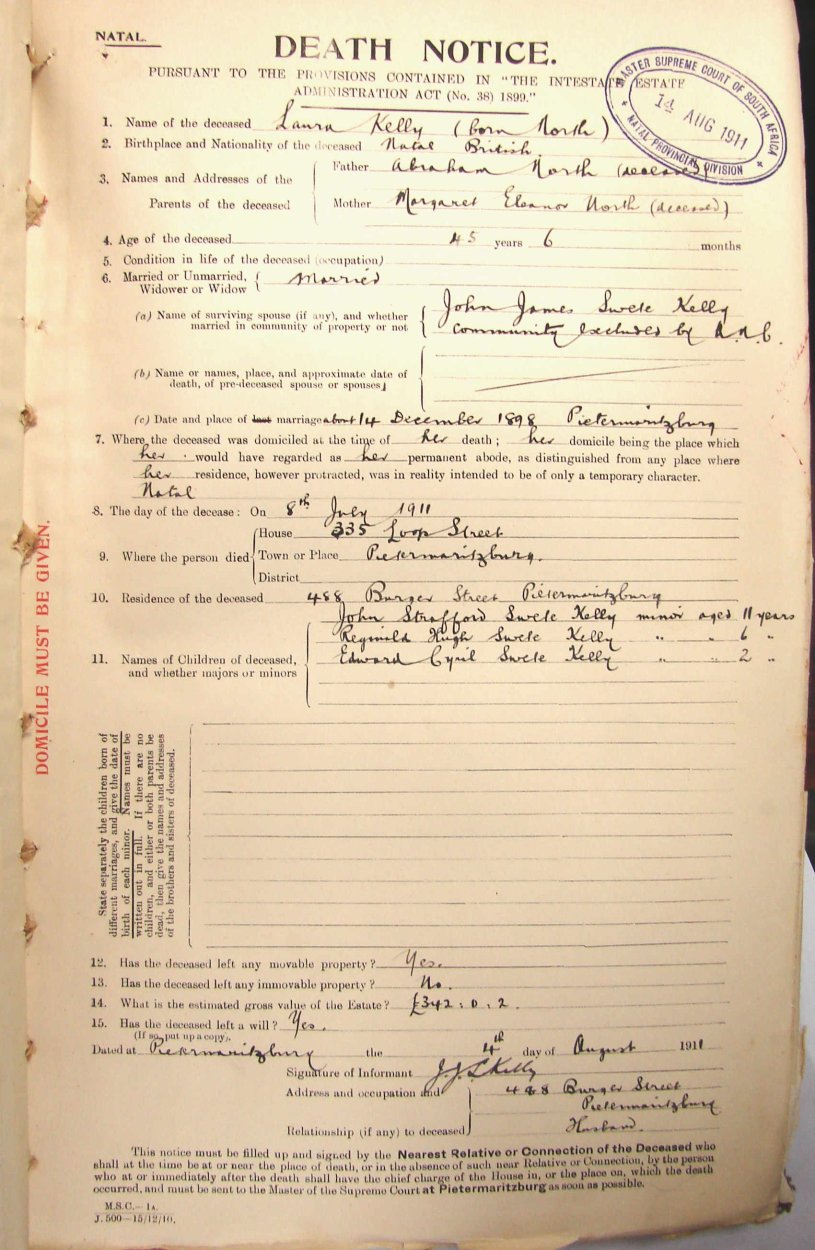 NATAL.
DEATH NOTICE.
PURSUANT TO THE PROVISIONS CONTAINED IN "THE INTESTATE ESTATE
ADMINISTRATION ACT (No. 38) 1899."
MASTER SUPREME COURT OF SOUTH AFRICA
14 AUG 1911
NATAL PROVINCIAL DIVISION
1. Name of the deceased Laura Kelly (born North)
2. Birthplace and Nationality of the deceased Natal British
3. Names and Addresses of the Parents of the deceased
Father Abraham North (deceased)
Mother Margaret Eleanor North (deceased)
4. Age of the deceased 45 years 6 months
5. Condition in life of the deceased (occupation)
6. Married or Unmarried, Widower or Widow Married
(a) Name of surviving spouse (if any), and whether married in community of property or not
John James Swete Kelly
Community Excluded by A.N.C.
(b) Name or names, place, and approximate date of death, of pre-deceased spouse or spouses
(c) Date and place of last marriage about 14 December 1898 Pietermaritzburg
7. Where the deceased was domiciled at the time of her death; her domicile being the place which
her would have regarded as her permanent abode, as distinguished from any place where
her residence, however protracted, was in reality intended to be of only a temporary character.
Natal
8. The day of the decease: On 8th July 1911
9. Where the person died
House 335 Loop Street
Town or Place Pietermaritzburg.
District
10. Residence of the deceased 488 Burger Street Pietermaritzburg
11. Names of Children of deceased, and whether majors or minors
John Strafford Swete Kelly minor aged 11 years
Reginald Hugh Swete Kelly " " 6 "
Edward Cyril Swete Kelly " " 2 "
DOMICILE MUST BE GIVEN.
State separately the children born of
different marriages, and give the date of
birth of each minor. Names must be
written out in full. If there are no
children, and either or both parents be
dead, then give the names and addresses
of the brothers and sisters of deceased.
12. Has the deceased left any movable property? Yes.
13. Has the deceased left any immovable property? No.
14. What is the estimated gross value of the Estate? £342:0:2.
15. Has the deceased left a will? Yes.
(If so, put up a copy).
Dated at Pietermaritzburg the 4th day of August 1911
Signature of Informant J.J.S. Kelly
Address and occupation and 488 Burger Street
Pietermaritzburg
Relationship (if any) to deceased Husband.
This notice must be filled up and signed by the Nearest Relative or Connection of the Deceased who
shall at the time be at or near the place of death, or in the absence of such near Relative or Connection, by the person
who at or immediately after the death shall have the chief charge of the House in, or the place on, which the death
occurred, and must be sent to the Master of the Supreme Court at Pietermaritzburg as soon as possible.
M.S.C.—1A.
J. 500—15/12/10.